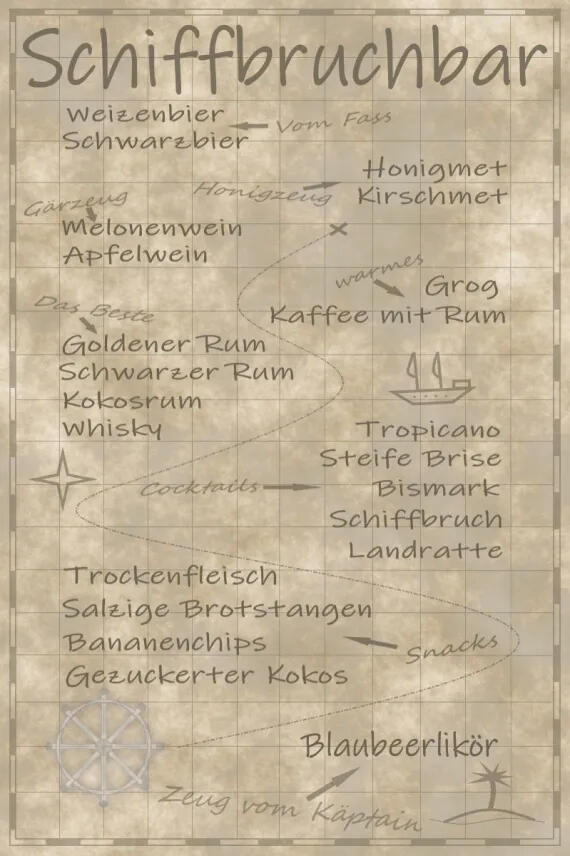 Schiffbruchbar
Weizenbier
Schwarzbier
Vom Fass
Honigmet
Kirschmet
Honigzeug
Gärzeug
Melonenwein
Apfelwein
warmes
Grog
Kaffee mit Rum
Das Beste
Goldener Rum
Schwarzer Rum
Kokosrum
Whisky
Tropicano
Steife Brise
Bismark
Schiffbruch
Landratte
Cocktails
Trockenfleisch
Salzige Brotstangen
Bananenchips
Gezuckerter Kokos
Snacks
Blaubeerlikör
Zeug vom Käptain